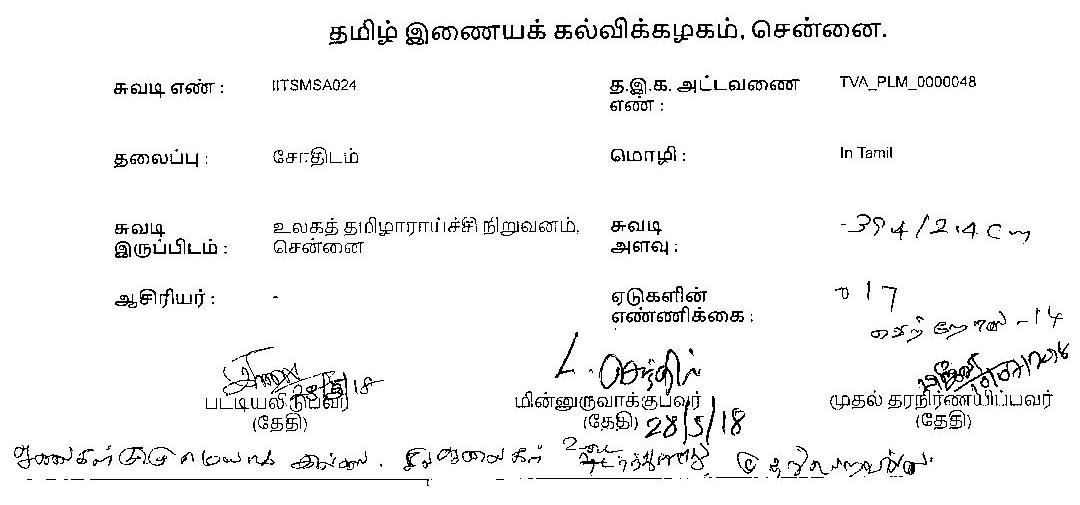 தமிழ் இணையக் கல்விக்கழகம், சென்னை.
சுவடி எண் : IITSMSA024 த.இ.க. அட்டவணை எண் : TVA_PLM_0000048
தலைப்பு : சோதிடம் மொழி : In Tamil
சுவடி இருப்பிடம் : உலகத் தமிழாராய்ச்சி நிறுவனம், சென்னை சுவடி அளவு : 39.4/2.4 cm
ஆசிரியர் : - ஏடுகளின் எண்ணிக்கை : 017
வெற்றோலை - 14
28/5/18 L. செந்தில்
பட்டியலிடுபவர் (தேதி) மின்னுருவாக்குபவர் (தேதி) 28/5/18 முதல் தரநிர்ணயிப்பவர் (தேதி)
இல்லை. சில